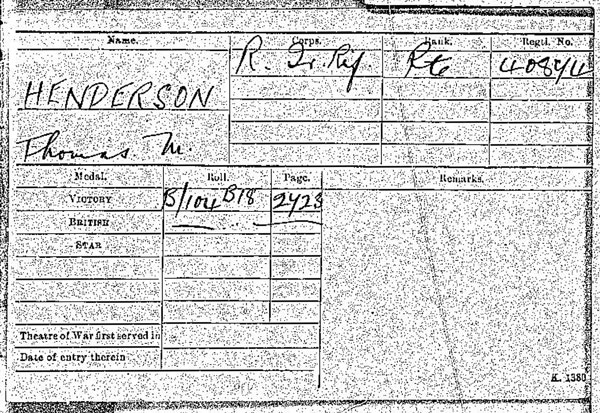 Name. Corps. Rank. Regtl. No.
R. Ir. Rif. Pte
HENDERSON
Thomas M.
Medal. Roll. Page. Remarks.
VICTORY B/104 B18 2423
BRITISH
STAR
Theatre of War first served in
Date of entry therein
K. 1380